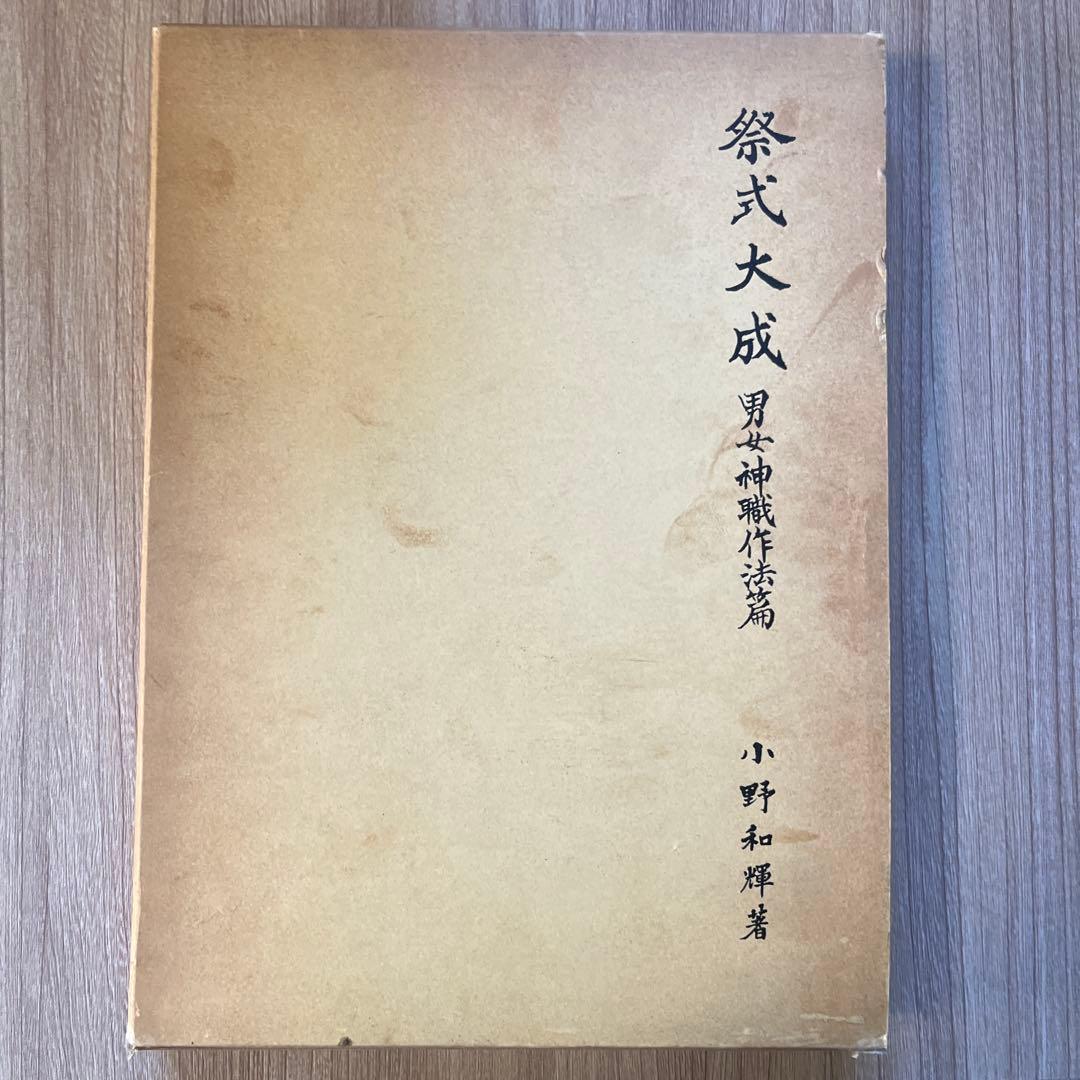 祭式大成 男女神職作法篇
小野和輝著